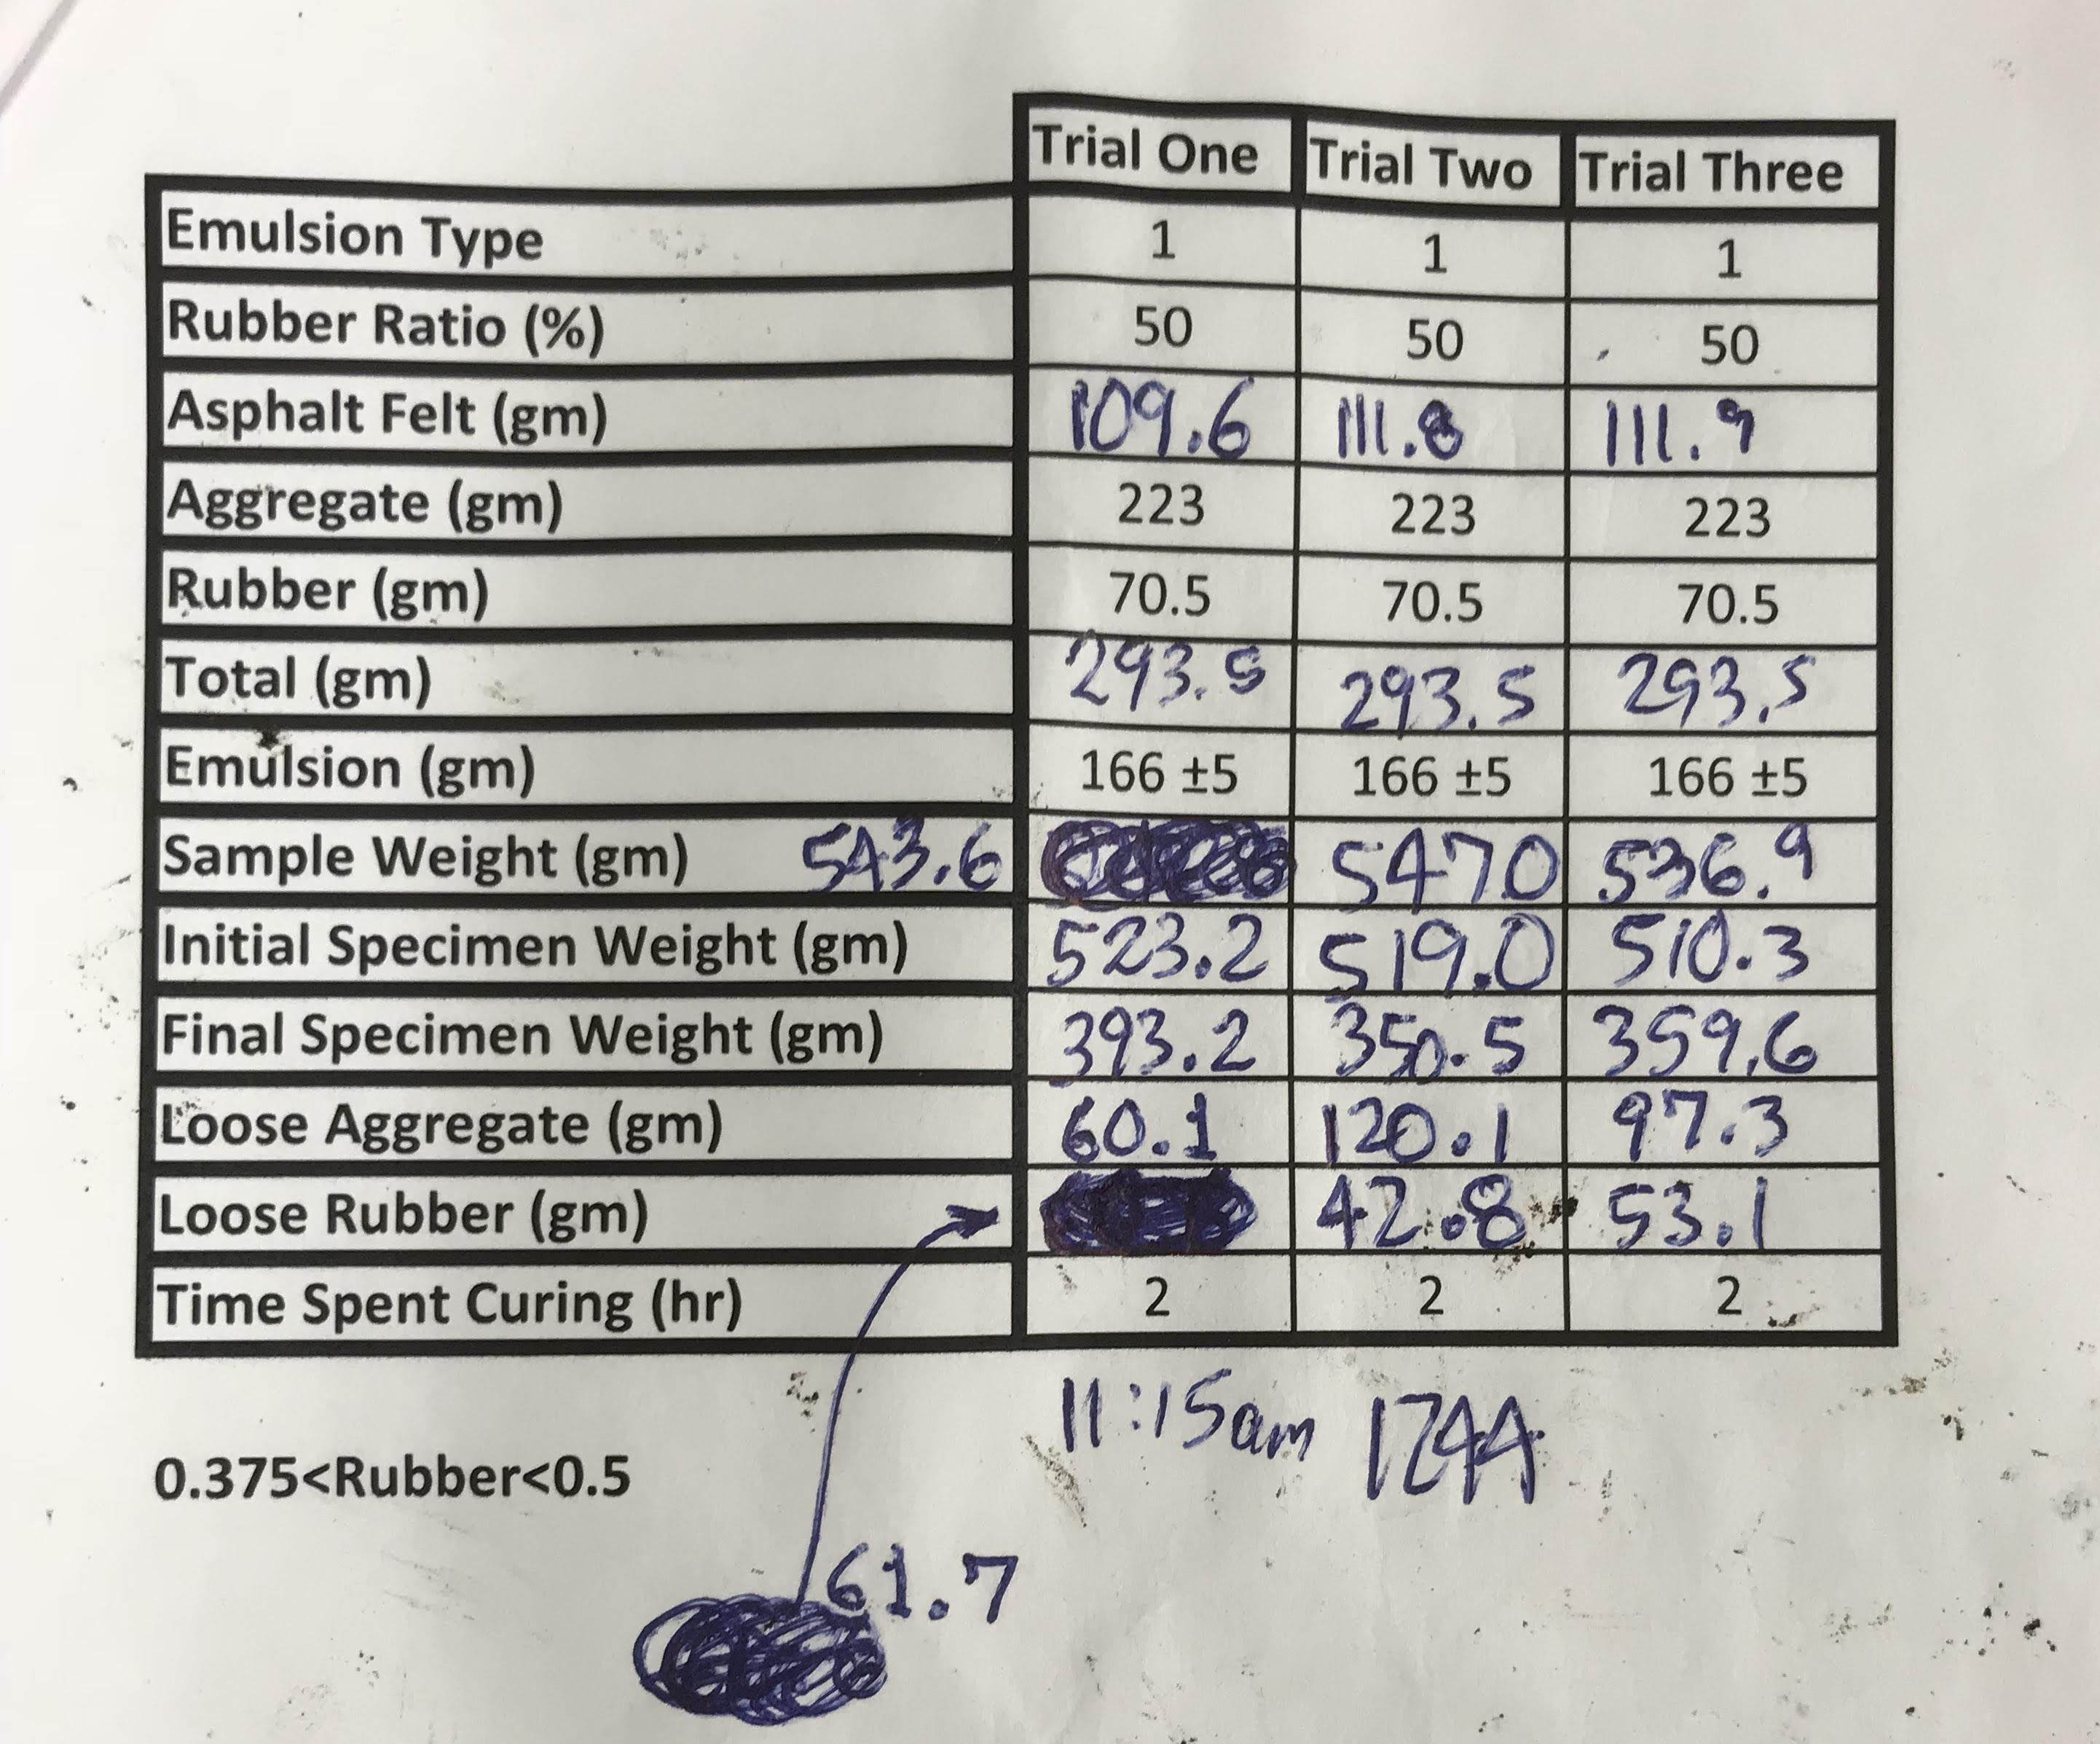 Trial One Trial Two Trial Three
Emulsion Type 1 1 1
Rubber Ratio (%) 50 50 50
Asphalt Felt (gm) 109.6 111.8 111.9
Aggregate (gm) 223 223 223
Rubber (gm) 70.5 70.5 70.5
Total (gm) 293.5 293.5 293.5
Emulsion (gm) 166 ±5 166 ±5 166 ±5
Sample Weight (gm) 543.6 547.0 536.9
Initial Specimen Weight (gm) 523.2 519.0 510.3
Final Specimen Weight (gm) 393.2 350.5 359.6
Loose Aggregate (gm) 60.1 120.1 97.3
Loose Rubber (gm) 42.8 53.1
Time Spent Curing (hr) 2 2 2
11:15am
0.375<Rubber<0.5
61.7